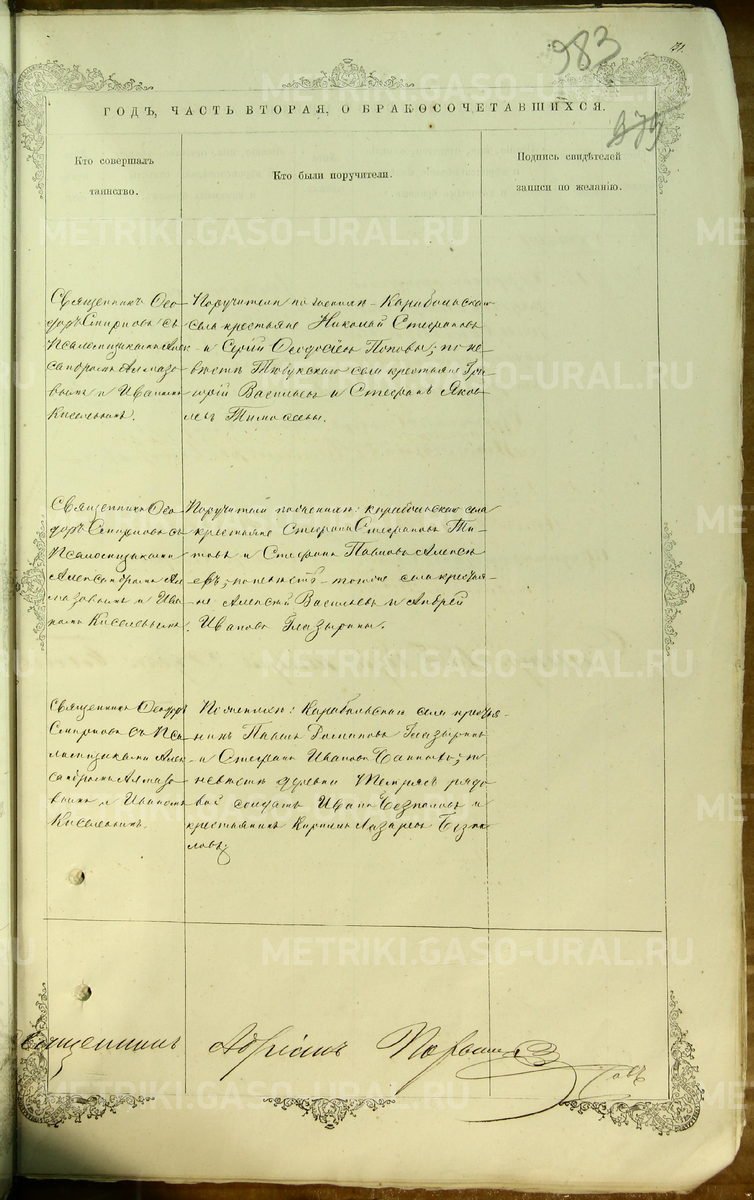 983
31.
875
ГОДЪ, ЧАСТЬ ВТОРАЯ, О БРАКОСОЧЕТАВШИХСЯ.
Кто совершалъ
таинство.
Кто были поручители.
Подпись свидѣтелей
записи по желанію.
METRIKI.GASO-URAL.RU
Священникъ Ѳео-
доръ Смирновъ съ
Псаломщиками Алек-
сандромъ Алмазо-
вымъ и Иваномъ
Киселевымъ.
Поручители по женихѣ - Карабольскаго
села крестьяне Николай Стефановъ
и Сергій Ѳеодосіевъ Поповы; по не-
вѣстѣ Тюбукскаго села крестьяне Гри-
горій Васильевъ и Стефанъ Яков-
левъ
Священникъ Ѳео-
доръ Смирновъ съ
Псаломщиками
Александромъ Ал-
мазовымъ и Ива-
номъ Киселевымъ.
Поручители по женихѣ: Карабольскаго села
крестьяне Стефанъ Стефановъ Ти-
товъ и Стефанъ Павловъ Алексѣ-
евъ; по невѣстѣ - того же села крестья-
не Алексѣй Васильевъ и Андрей
Ивановъ Глазырины.
Священникъ Ѳеодоръ
Смирновъ съ Пса-
ломщиками Алек-
сандромъ Алмазо-
вымъ и Иваномъ
Киселевымъ.
По женихѣ: Карабольскаго села крестья-
нинъ Павелъ Глазыринъ
и Стефанъ Ивановъ; по
невѣстѣ деревни рядо-
вой солдатъ Иванъ и
крестьянинъ Кириллъ Лазаревъ
Священникъ Адріанъ